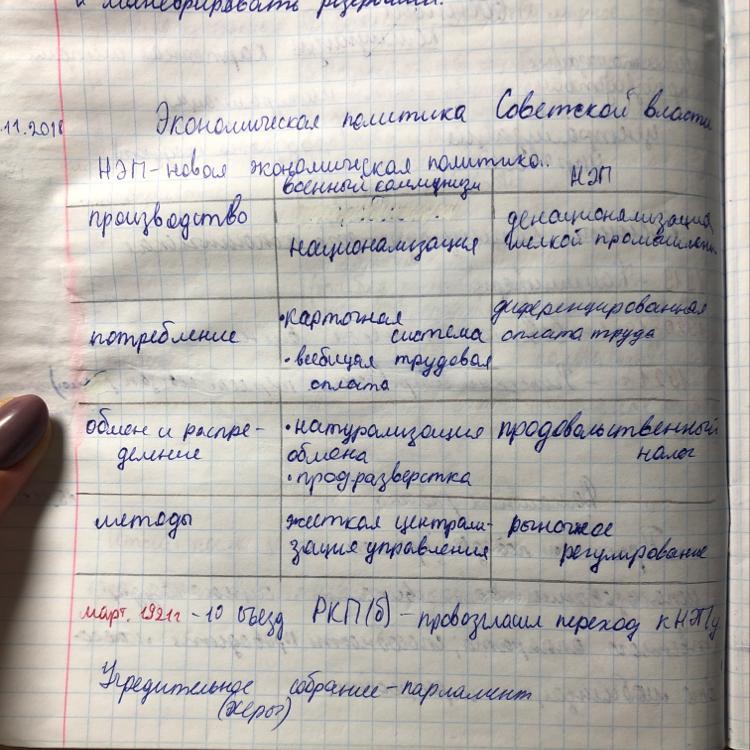 и маневрировать резервами.
.11.2018 Экономическая политика Советской власти
НЭП-новая экономическая политика..
военный коммунизм НЭП
производство национализация денационализация мелкой промышленн
потребление •карточная система •всеобщая трудовая оплата диференцированная оплата труда
обмен и распре-деление •натурализация обмена •прод.разверстка продовольственный налог
методы жесткая централи-зация управления рыночное регулирование
март. 1921г - 10 съезд РКП(б) - провозгласил переход к НЭПу
Учредительное собрание-парламент
(эсеры)